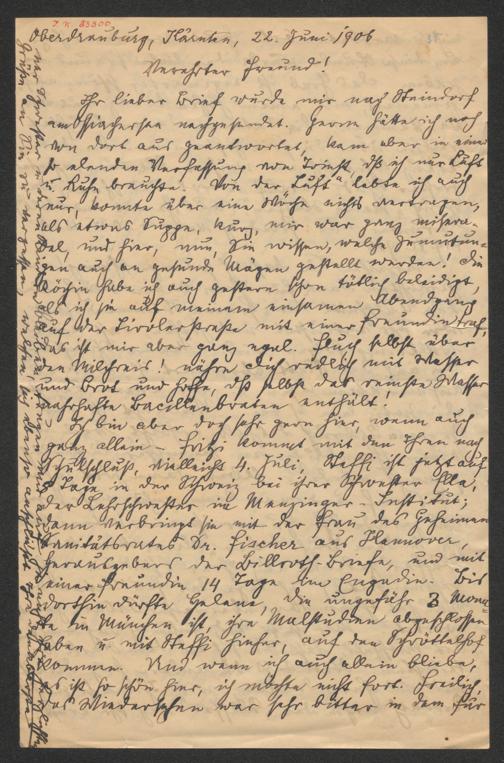 J. N. 83500
Oberdrauburg, Kärnten, 22. Juni 1906
Verehrter Freund!
Ihr lieber Brief wurde mir nach Steindorf
am Ossiachersee nachgesendet. Gerne hätte ich noch
von dort aus geantwortet, kam aber in einer
so elenden Verfassung von Triest, dß ich nur Luft
u. Ruhe brauchte. Von der „Luft" lebte ich auch
nur, konnte über eine Woche nichts vertragen,
als etwas Suppe, kurz, mir war ganz misera-
bel, und hier, nun, Sie wissen, welche Zumutun-
gen auch an gesunde Mägen gestellt werden! Die
Köchin habe ich auch gestern schon tötlich beleidigt,
als ich sie auf meinem einsamen Abendgang
auf der Tirolerstraße mit einer Freundin traf,
das ist mir aber ganz egal. Fluch selbst über
den Milchreis! nähre dich redlich mit Wasser
und Brot und hoffe, dß selbst das reinste Wasser
nahrhafte Bacillenbraten enthält!
Ich bin aber doch sehr gern hier, wenn auch
ganz allein – Fritzi kommt mit den Ihren nach
Schulschluß, vielleicht 4. Juli, Steffi ist jetzt auf
8 Tage in der Schweiz bei ihrer Schwester Ella,
der Lehrschwester im Menzinger-Institut;
dann verbringt sie mit der Frau des Geheimen
Sanitätsrates Dr. Fischer aus Hannover,
Herausgebers der Billroth-Briefe, und mit
einer Freundin 14 Tage im Engadin. Bis
dorthin dürfte Helene, die ungefähr 3 Mona-
te in München ist, ihre Malstudien abgeschlossen
haben u. mit Steffi hieher, auf den Schrottelhof
kommen. Und wenn ich auch allein bliebe,
es ist so schön hier, ich möchte nicht fort. Freilich,
das Wiedersehen war sehr bitter in dem für